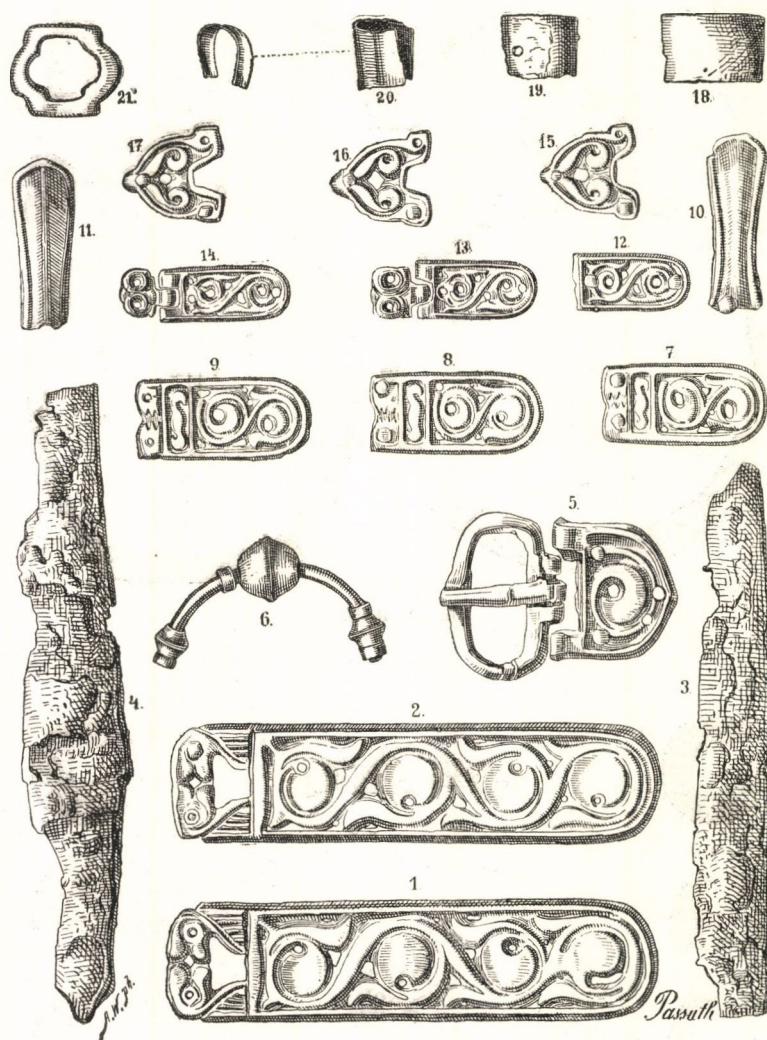 21.
20.
19.
18.
17
16.
15.
11.
10.
14.
13.
12.
9
8.
7
5.
6.
4.
3.
2.
1
Passuth